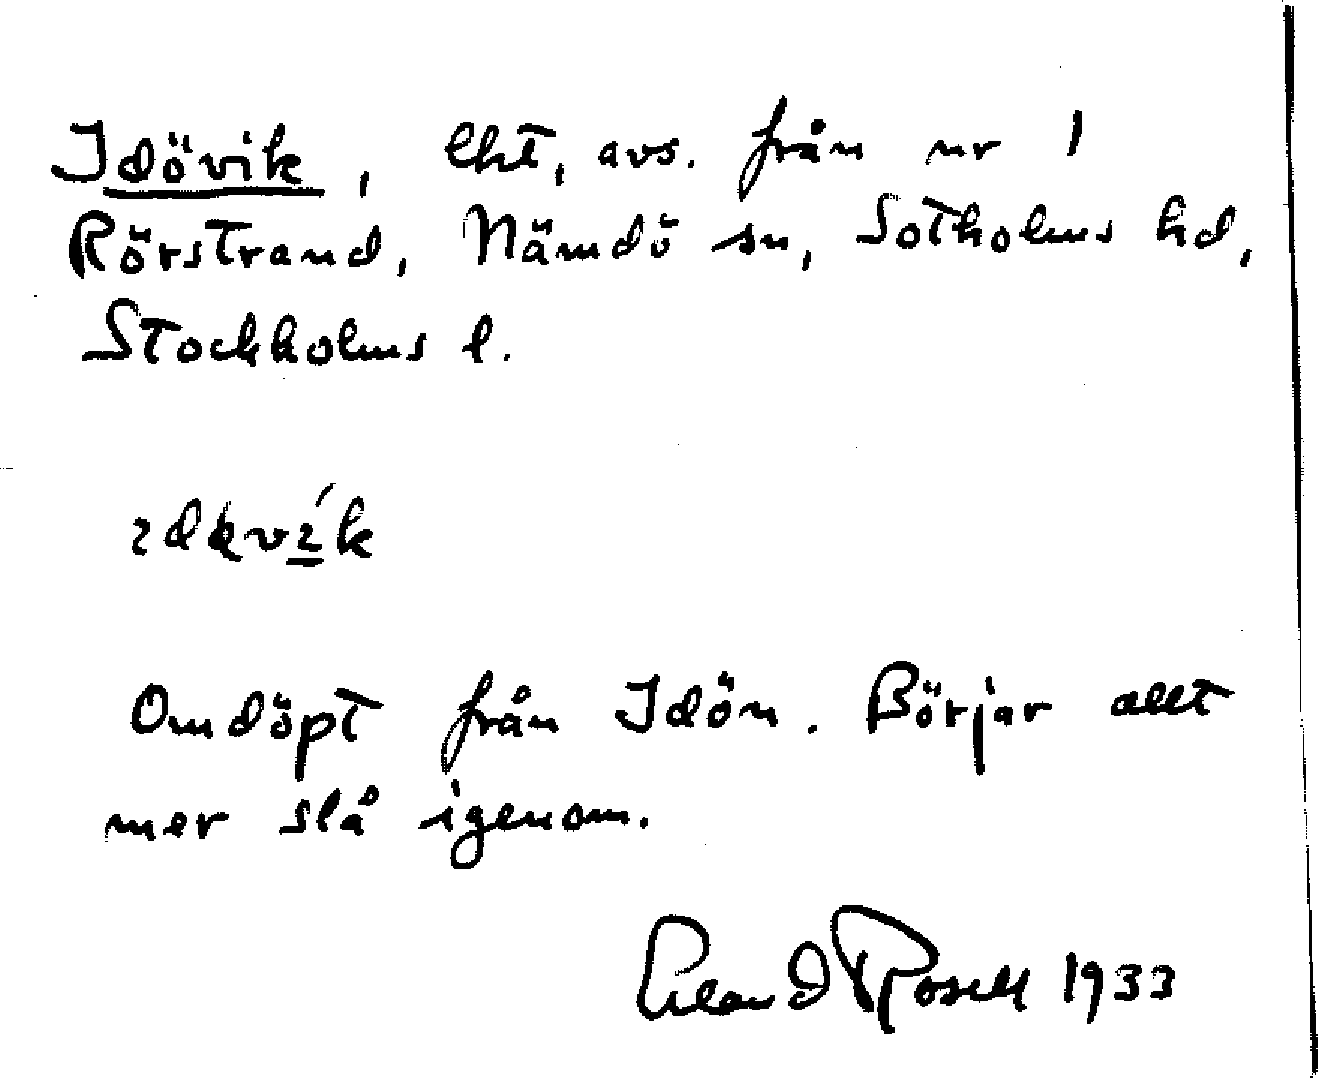 Idövik, lht, avs. från nr 1
Rörstrand, Nämdö sn, Sotholms hd,
Stockholms l.
Omdöpt från Idön. Börjar allt
mer slå igenom.
Rosell 1933